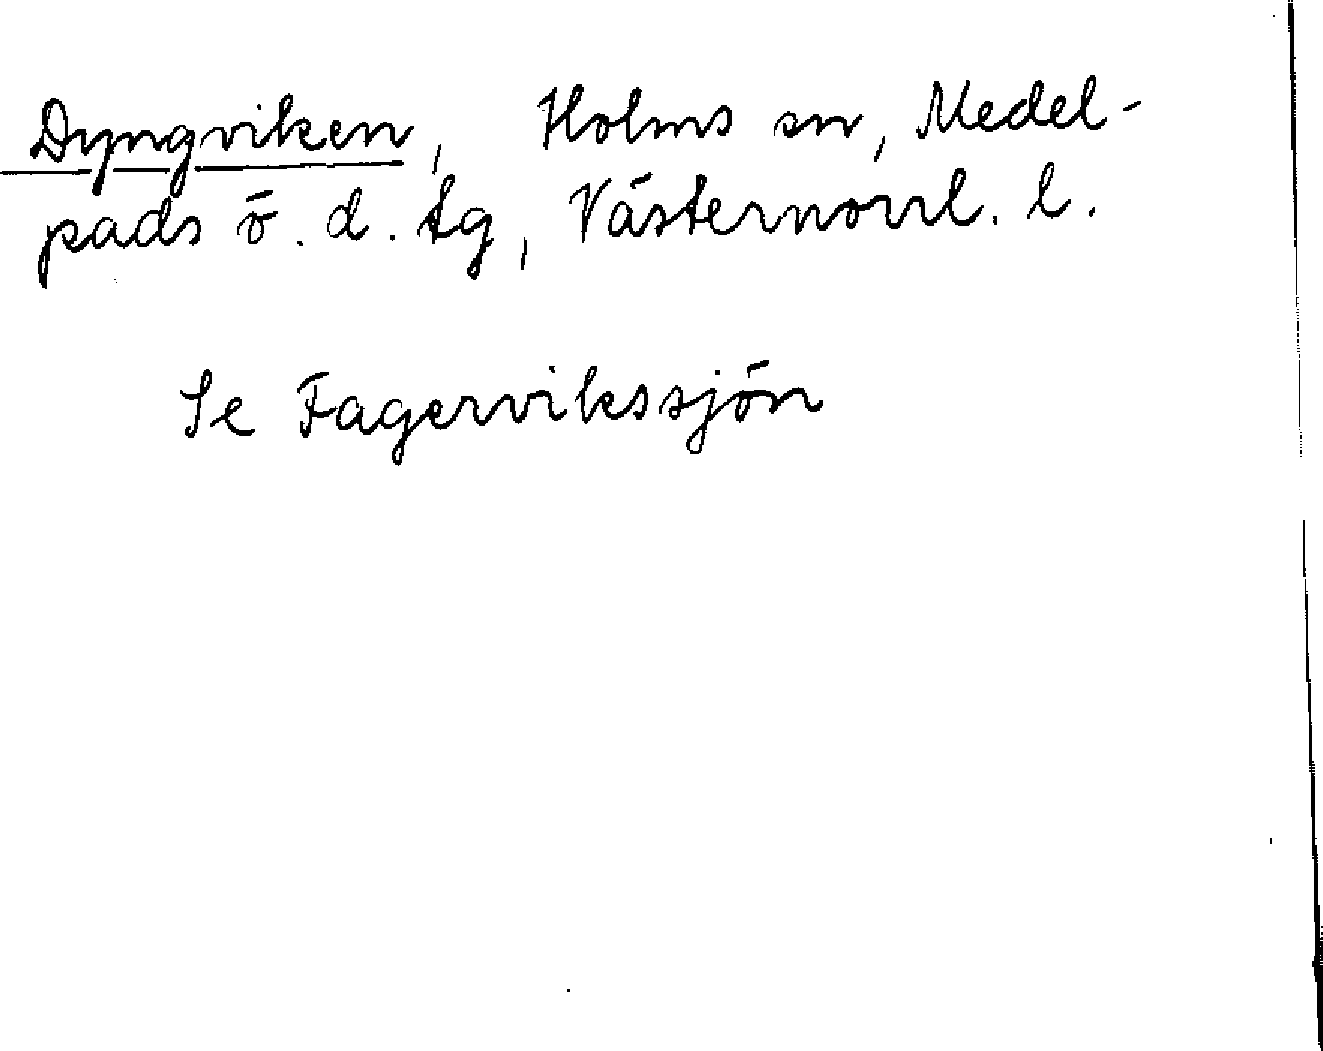 Dyngviken, Holms sn, Medel-
pads ö. d. tg, Västernorrl. l.
Se Fagervikssjön